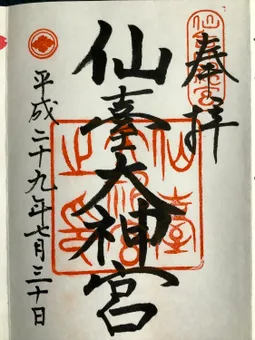 奉拝
仙臺大神宮
平成二十九年七月三十日